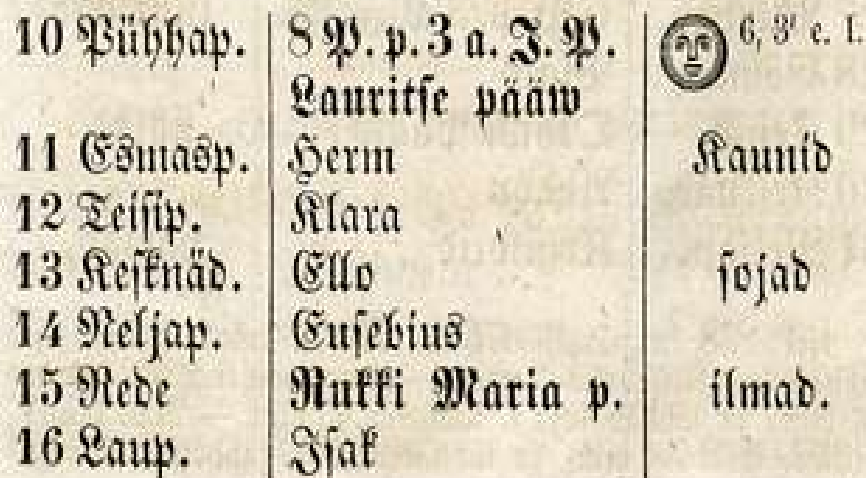 10 Pühhap. 8 P. p. 3 a. J. P. 6, 3' e. l.
Lauritse pääw
11 Esmasp. Herm Kaunid
12 Teisip. Klara
13 Kesknäd. Ello sojad
14 Neljap. Eusebius
15 Rede Rukki Maria p. ilmad.
16 Laup. Isak